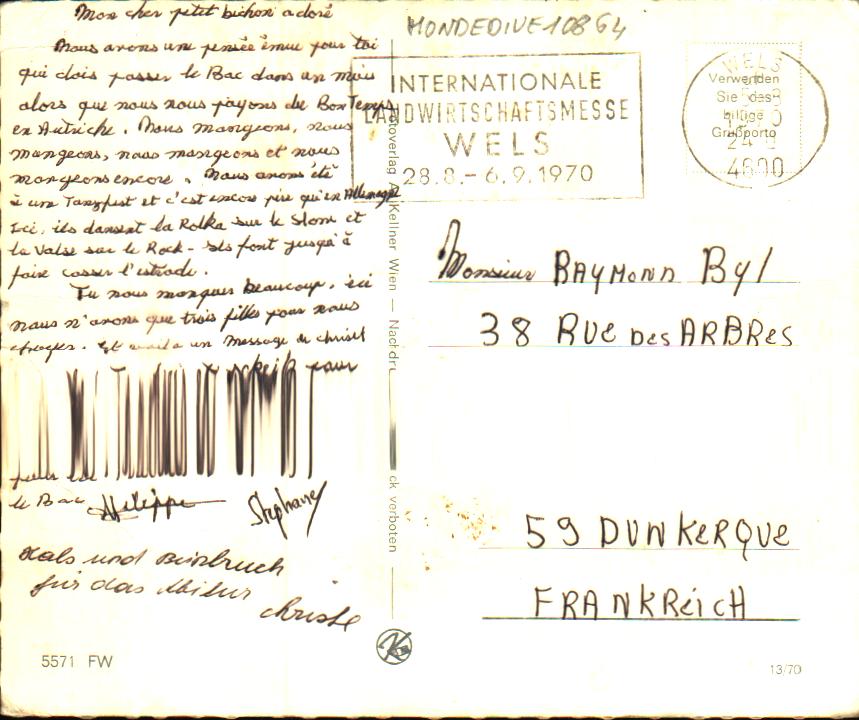 Mon cher petit bichon adoré
Nous avons une pensée émue pour toi
qui dois passer le Bac dans un mois
alors que nous nous payons du Bon Temps
en Autriche. Nous mangeons, nous
mangeons, nous mangeons et nous
mangeons encore. Nous avons été
à un Tanzfest et c'est encore pire qu'en Allemagne
Ici, ils dansent la Polka sur le Slow et
la Valse sur le Rock - Ils font jusqu'à
faire casser l'estrade.
Tu nous manques beaucoup, ici
nous n'avons que trois filles pour nous
Et voilà un message de
pour
pour
le Bac Philippe Stéphane
Hals und Beinbruch
für das Abitur
Christe
5571 FW
Kellner Wien — Nachdru
ck verboten
MONDEDIVE10864
INTERNATIONALE
LANDWIRTSCHAFTSMESSE
WELS
28.8.- 6.9.1970
WELS
4600
Verwenden
Sie das
billige
Grußporto
Monsieur RAYMOND Byl
38 RUe Des ARBRes
59 DUNKeRQUe
FRANKReicH
13/70